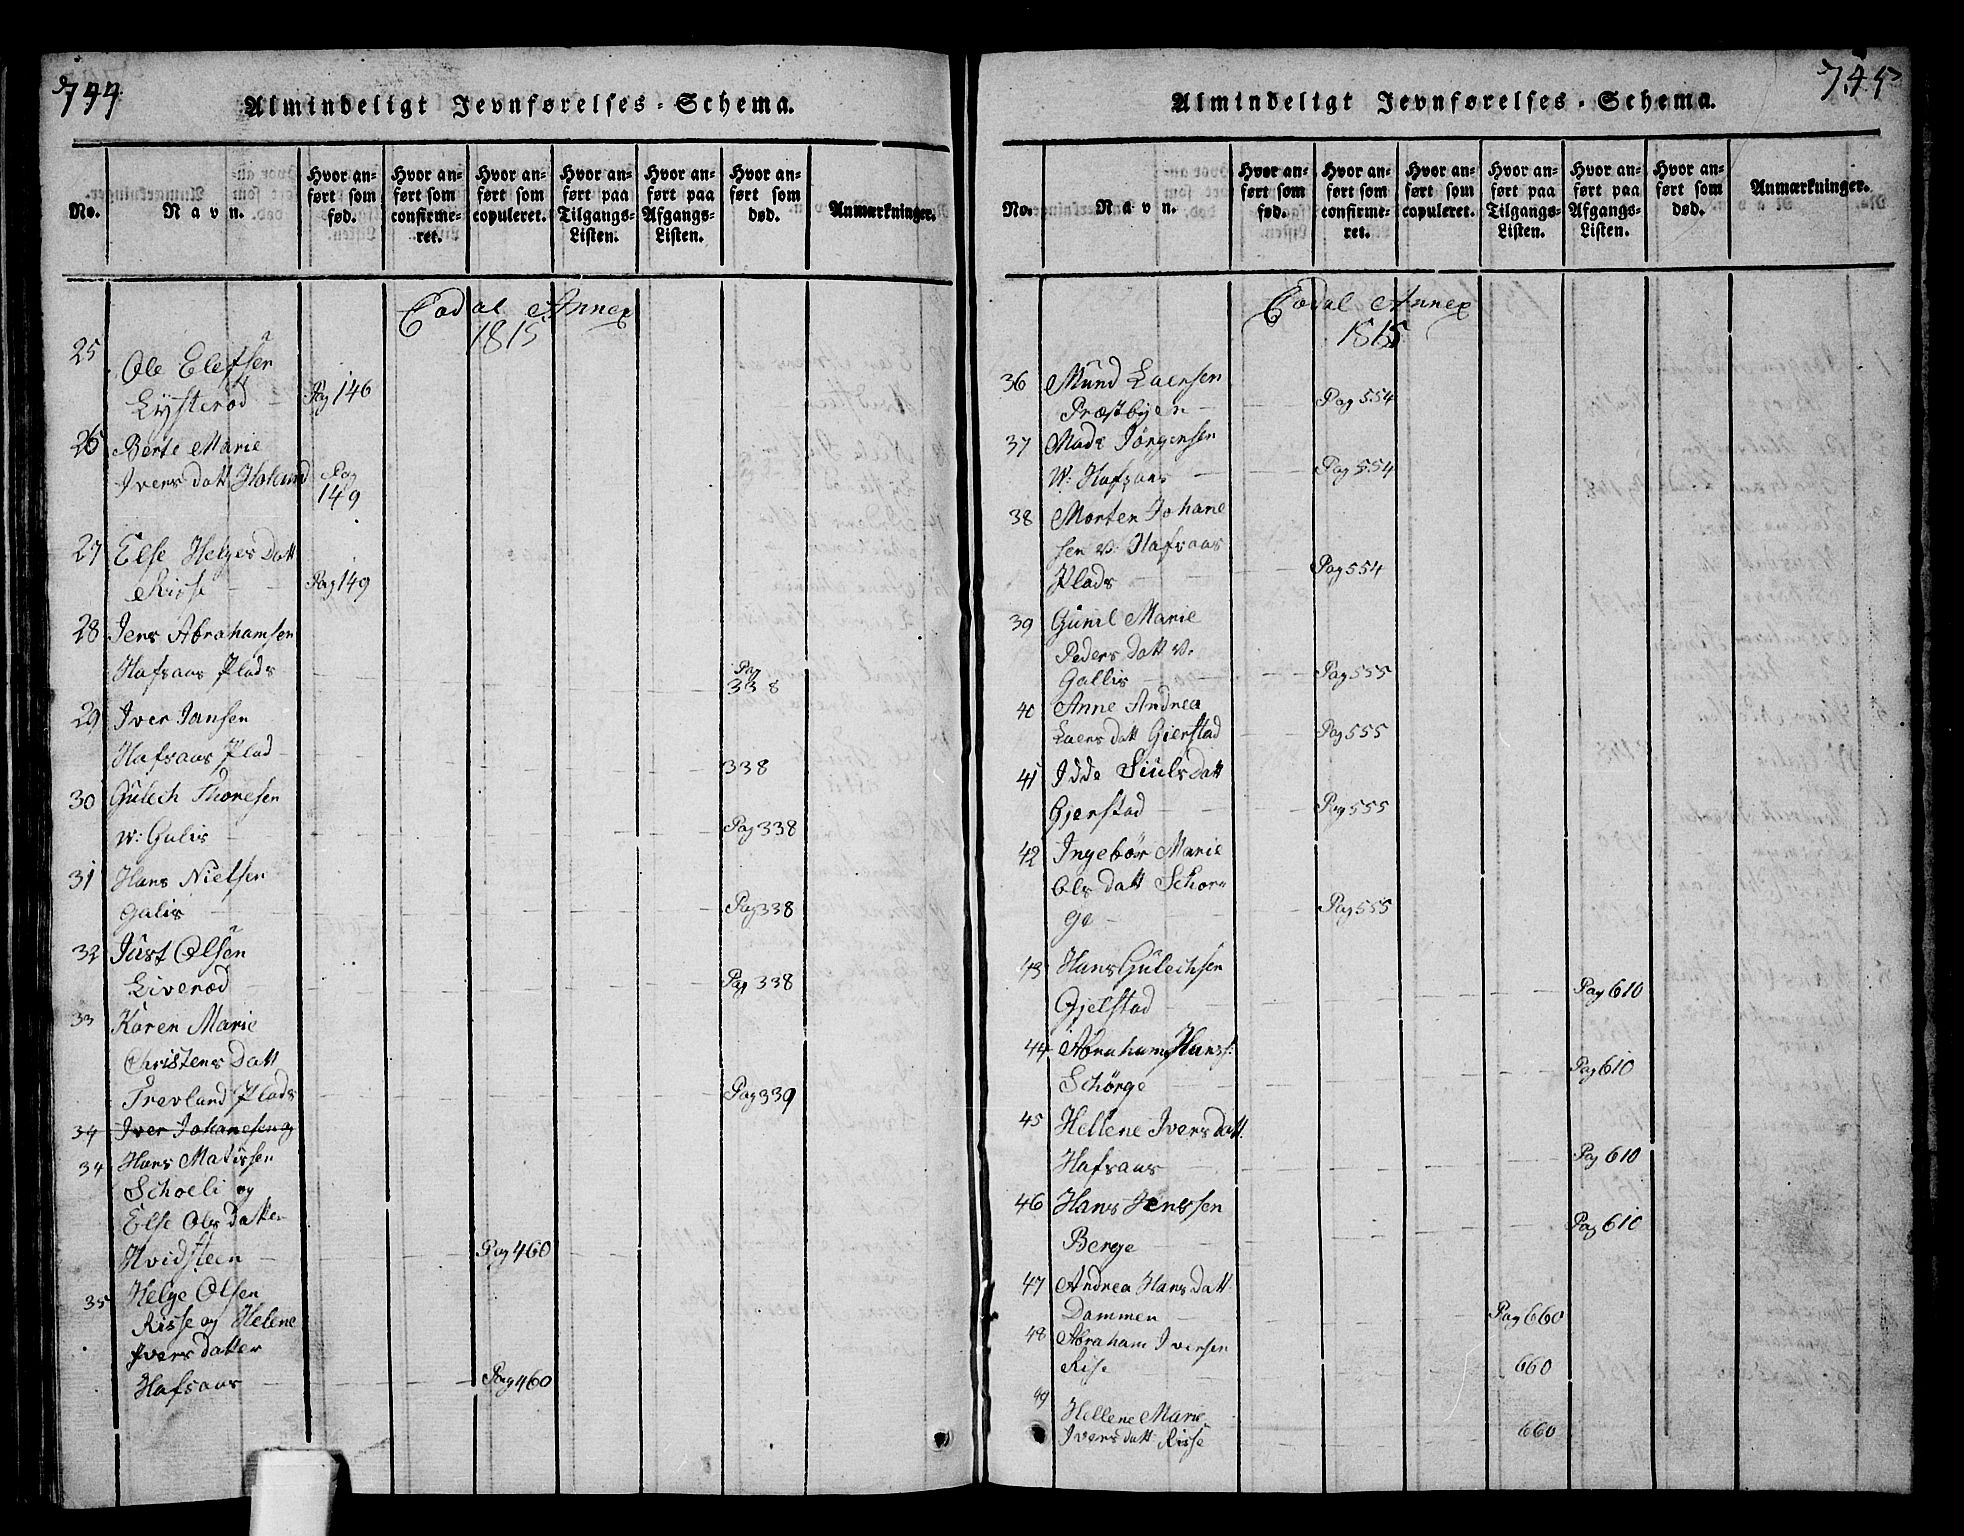 744.
Almindeligt Jevnførelses-Schema.
No.
Navn.
Hvor an-
ført som
fød.
Hvor an-
ført som
confirme-
ret.
Hvor an-
ført som
copuleret.
Hvor an-
ført paa
Tilgangs-
Listen.
Hvor an-
ført paa
Afgangs-
Listen.
Hvor an-
ført som
død.
Anmærkninger.
Annex
1815
25
Ole Elefsen
Lysteröd Pag 146
26 Berte Marie
Ivers datt Holand Pag
149
27 Else Helges Datt
Risse Pag 149
28 Jens Abrahamsen
Hafsaas Plads Pag
338
29 Iver Jansen
Hafsaas Plad 338
30 Gulech Thoresen
W: Galis Pag 338
31 Hans Nielsen
Galis Pag 338
32 Just Olsen
Liveröd Pag 338
33 Karen Marie
Christens Datt
Trevland Plads Pag 339
34 Iver Johanesen og
34 Hans Matissen
Schoeli og
Else Ols datter
Hvidsteen Pag 460
35 Helge Olsen
Risse og Helene
Ivers datter
Hafsaas Pag 460
745
Almindeligt Jevnførelses-Schema.
No.
Navn.
Hvor an-
ført som
fød.
Hvor an-
ført som
confirme-
ret.
Hvor an-
ført som
copuleret.
Hvor an-
ført paa
Tilgangs-
Listen.
Hvor an-
ført paa
Afgangs-
Listen.
Hvor an-
ført som
død.
Anmærkninger.
Annex
1815
36 Mund Laersen
Præstbyen Pag 554
37 Mads Jörgensen
W: Hafsaas Pag 554
38 Morten Johane
sen v: Hafsaas
Plads Pag 554
39 Gunil Marie
Peders datt v.
Gallis Pag 555
40 Anne Andrea
Laers datt Gierstad Pag 555
41 Idde Siuls datt
Gjerstad Pag 555
42 Ingebör Marie
Ols datt Schor-
ge Pag 555
43 Hans Gulechsen
Gjelstad Pag 610
44 Abraham Hansf:
Schörge Pag 610
45 Hellene Ivers datt.
Hafsaas Pag 610
46 Hans Jenssen
Berge Pag 610
47 Andrea Hans datt
Dammen Pag 660
48 Abraham Iversen
Rise 660
49
Hellene Marie
Ivers datt Risse 660